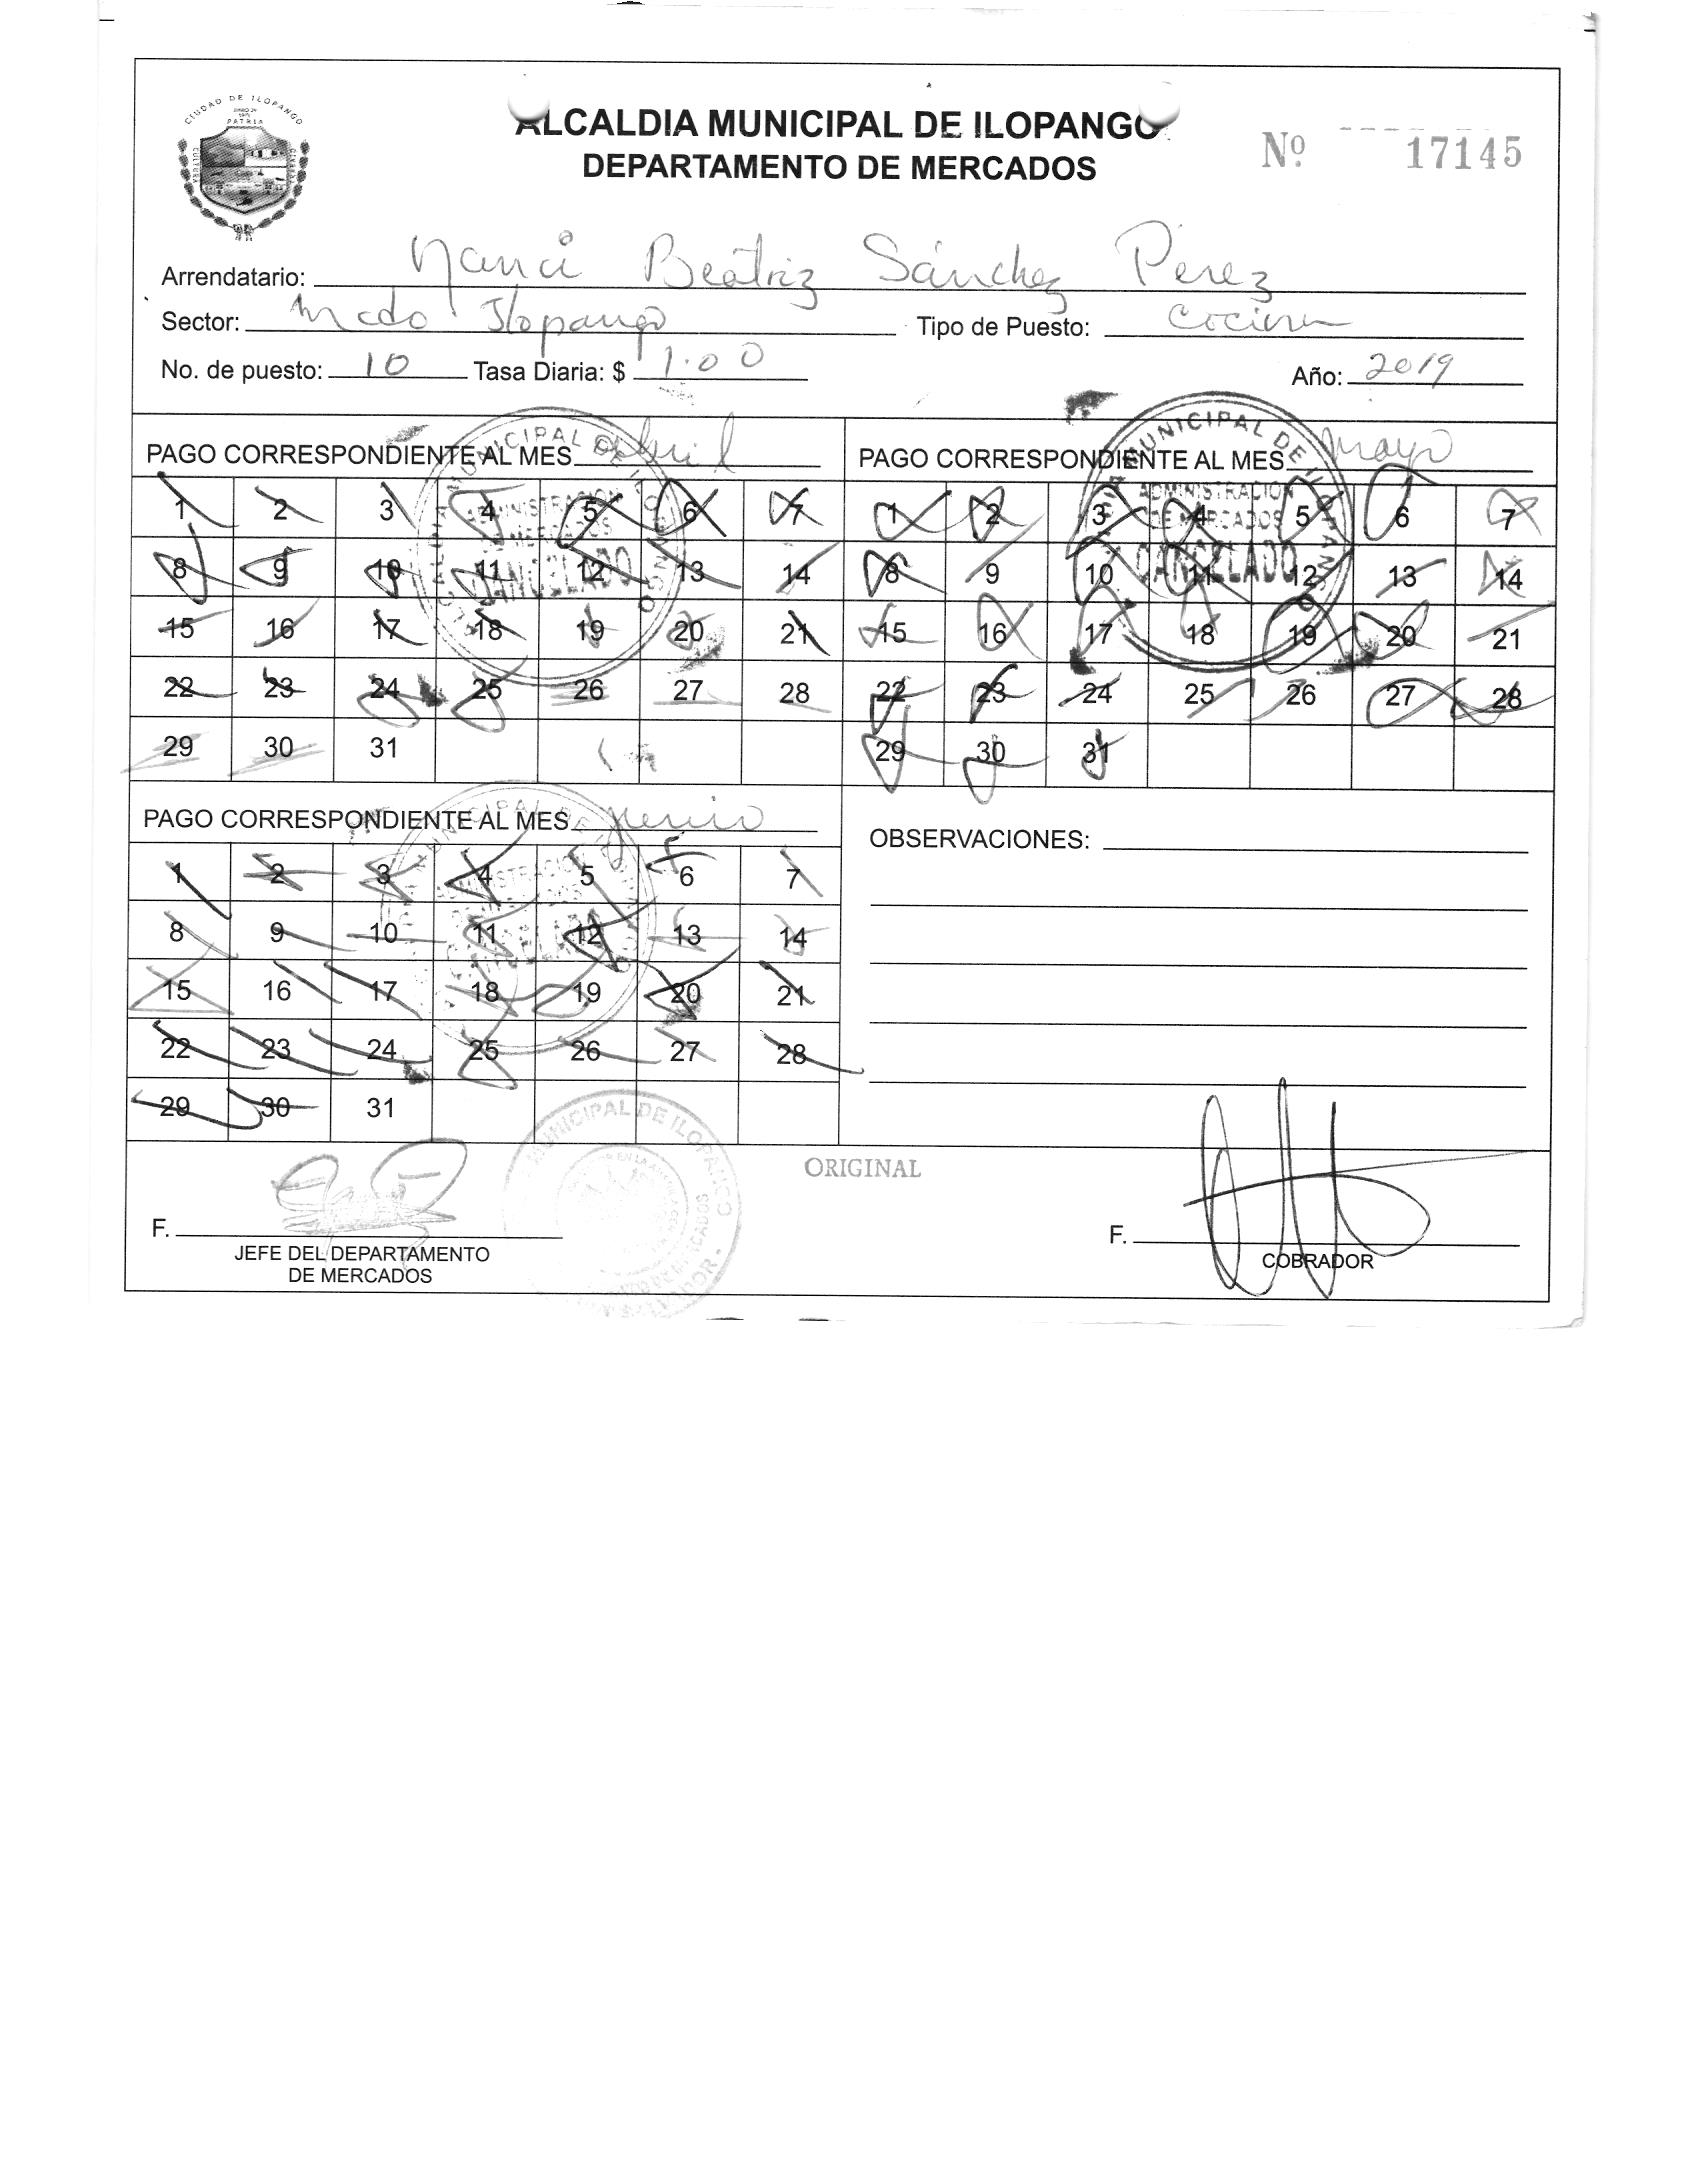 CIUDAD DE ILOPANGO
PATRIA
CULTURA
ALCALDIA MUNICIPAL DE ILOPANGO
DEPARTAMENTO DE MERCADOS
Nº 17145
Arrendatario: Nanci Beatriz Sánchez Pérez
Sector: Mcdo Ilopango Tipo de Puesto: Cocina
No. de puesto: 10 Tasa Diaria: $ 1.00 Año: 2019
PAGO CORRESPONDIENTE AL MES Abril
1 2 3 4 5 6 7
8 9 10 11 12 13 14
15 16 17 18 19 20 21
22 23 24 25 26 27 28
29 30 31
MUNICIPAL DE ILOPANGO
ADMINISTRACION
DE MERCADOS
CANCELADO
PAGO CORRESPONDIENTE AL MES Mayo
1 2 3 4 5 6 7
8 9 10 11 12 13 14
15 16 17 18 19 20 21
22 23 24 25 26 27 28
29 30 31
MUNICIPAL DE ILOPANGO
ADMINISTRACION
DE MERCADOS
CANCELADO
PAGO CORRESPONDIENTE AL MES Junio
1 2 3 4 5 6 7
8 9 10 11 12 13 14
15 16 17 18 19 20 21
22 23 24 25 26 27 28
29 30 31
MUNICIPAL DE
ADMINISTRACION
CANCELADO
OBSERVACIONES:
MUNICIPAL DE ILOPANGO
ORIGINAL
F.
JEFE DEL DEPARTAMENTO
DE MERCADOS
F.
COBRADOR